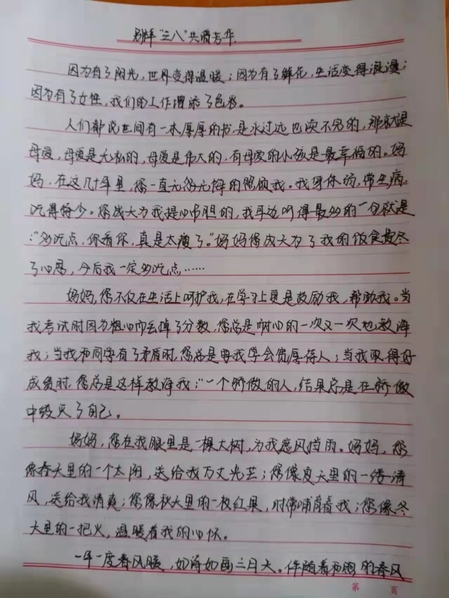 别样"三八"共谱芳华
因为有了阳光,世界变得温暖;因为有了鲜花,生活变得浪漫;
因为有了女性,我们的工作增添了色彩。
人们都说世间有一本厚厚的书是永远也读不完的,那就是
母爱,母爱是无私的,母爱是伟大的,有母爱的小孩是最幸福的。妈
妈,在这几十年里,您一直无微不至的照顾我。我身体弱,常生病,
吃得特少。您成天为我提心吊胆的,我耳边听得最多的一句就是
:"多吃点,你看你,真是太瘦了。"妈妈您成天为了我的饮食费尽
了心思,今后我一定多吃点……
妈妈,您不仅在生活上呵护我,在学习上更是鼓励我,帮助我。当
我考试时因为粗心而丢掉了分数,您总是耐心的一次又一次地教诲
我;当我和同学有了矛盾时,您总是要我学会宽厚待人;当我取得好
成绩时,您总是这样教诲我:"一个骄傲的人,结果总是在骄傲
中毁灭了自己。
妈妈,您在我眼里是一棵大树,为我遮风挡雨。妈妈,您
像春天里的一个太阳,送给我万丈光芒;您像夏天里的一缕清
风,送给我清爽;您像秋天里的一枚红果,时常哺育着我;您像冬
天里的一把火,温暖着我的心怀。
一年一度春风暖,如诗如画三月天。伴随着和煦的春风
第 页